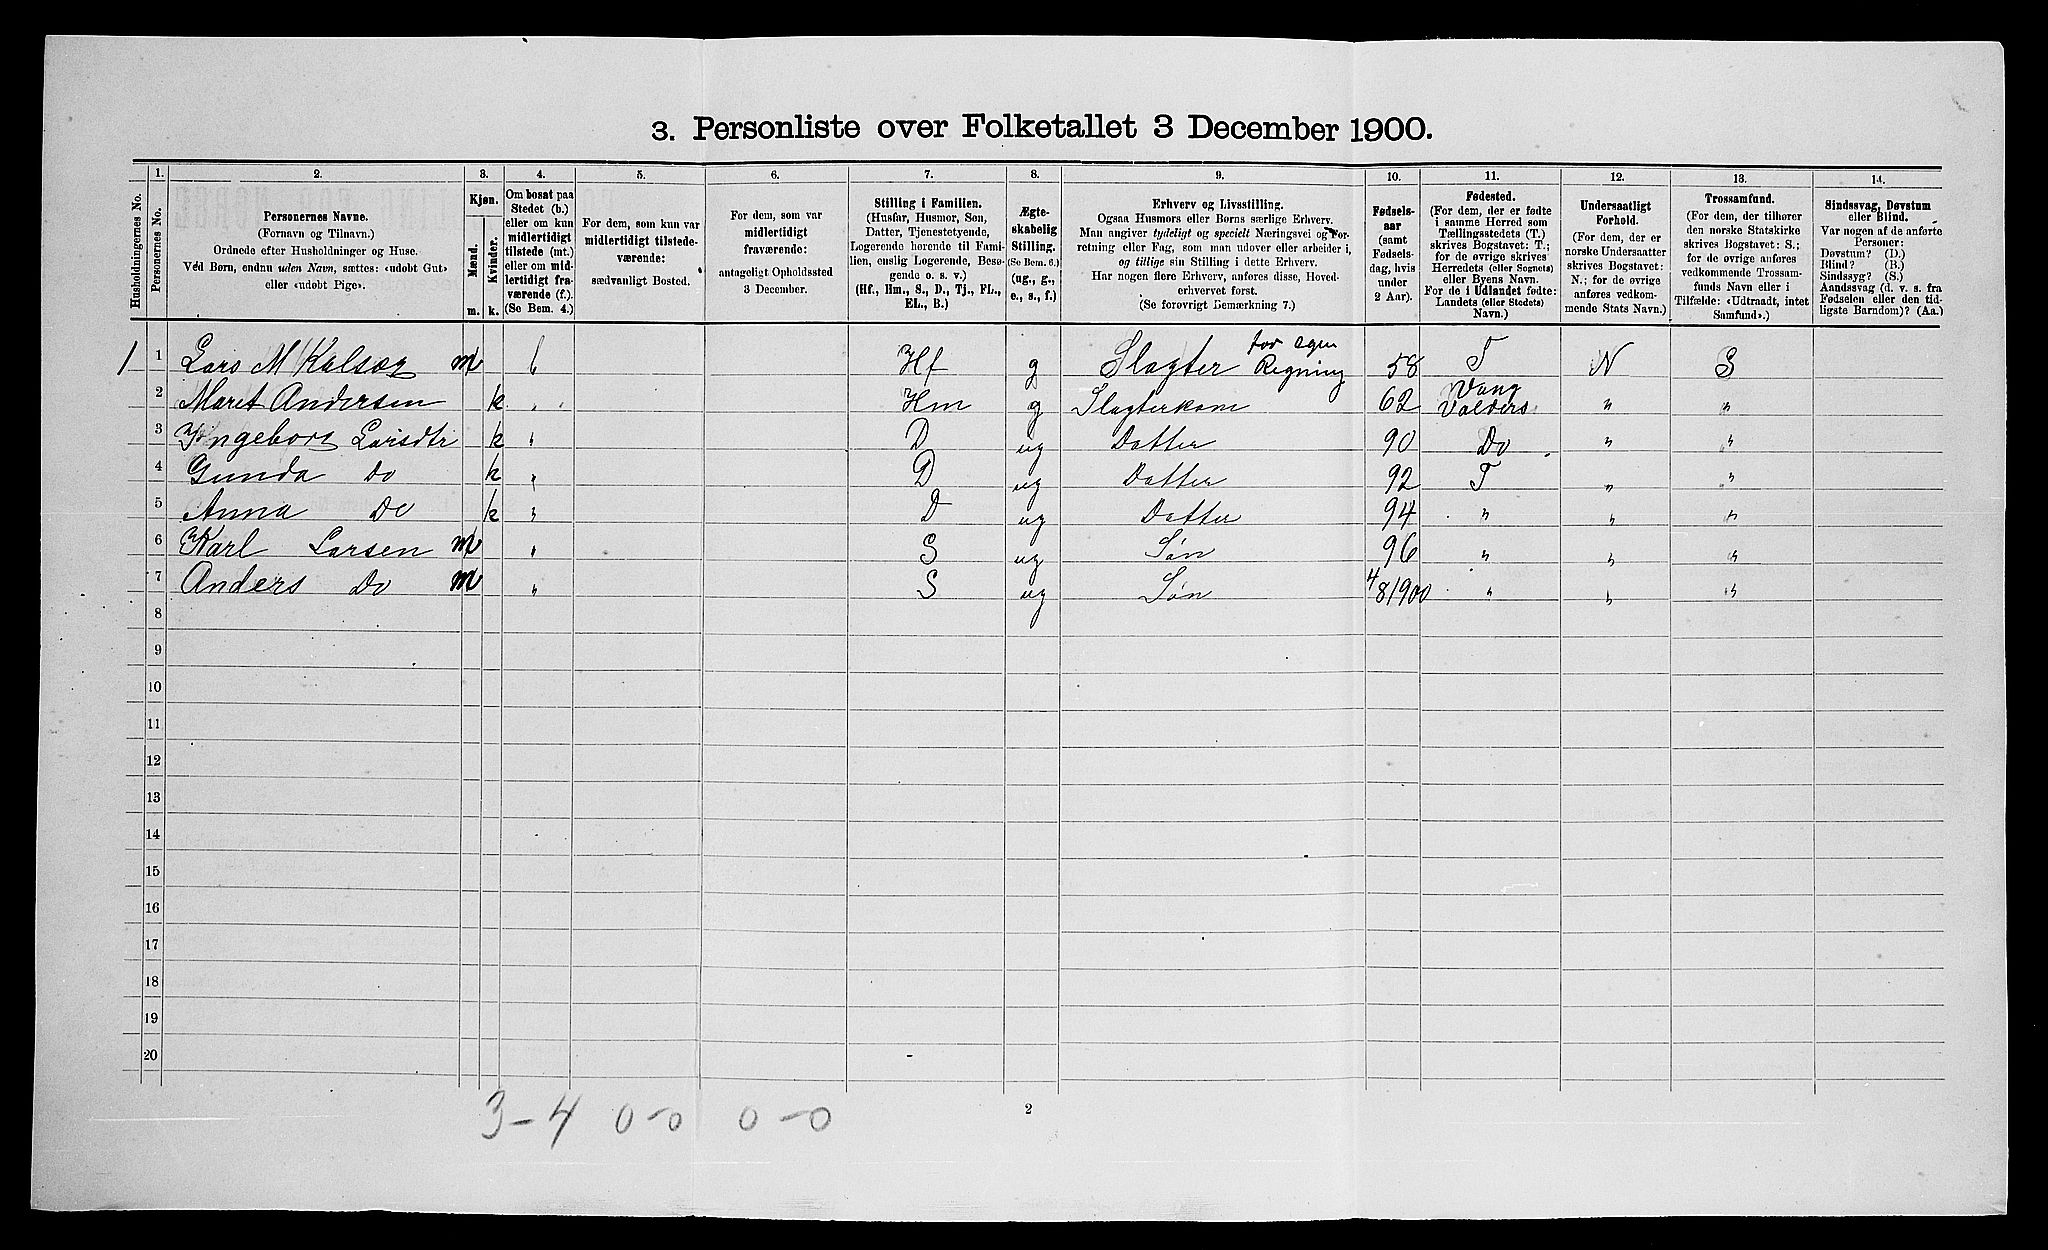 3. Personliste over Folketallet 3 December 1900.
Husholdningernes No.
1.
Personernes No.
2.
Personernes Navne.
(Fornavn og Tilnavn.)
Ordnede efter Husholdninger og Huse.
Ved Børn, endnu uden Navn, sættes: «udobt Gut»
eller «udobt Pige».
3.
Kjøn.
Mænd.
Kvinder.
m.
k.
4.
Om bosat paa
Stedet (b.)
eller om kun
midlertidigt
tilstede (mt.)
eller om mid-
lertidigt fra-
værende (f.).
(Se Bem. 4.)
5.
For dem, som kun var
midlertidigt tilstede-
værende:
sædvanligt Bosted.
6.
For dem, som var
midlertidigt
fraværende:
antageligt Opholdssted
3 December.
7.
Stilling i Familien.
(Husfar, Husmor, Søn,
Datter, Tjenestetyende,
Logerende hørende til Fami-
lien, enslig Logerende, Besø-
gende o. s. v.)
(Hf., Hm., S., D., Tj., FL.,
EL., B.)
8.
Ægte-
skabelig
Stilling.
(Se Bem. 6.)
(ug., g.,
e., s., f.)
9.
Erhverv og Livsstilling.
Ogsaa Husmors eller Børns særlige Erhverv.
Man angiver tydeligt og specielt Næringsvei og For-
retning eller Fag, som man udover eller arbeider i,
og tillige sin Stilling i dette Erhverv.
Har nogen flere Erhverv, anføres disse, Hoved-
erhvervet først.
(Se forøvrigt Bemærkning 7.)
10.
Fødsels-
aar
(samt
Fødsels-
dag, hvis
under
2 Aar).
11.
Fødested.
(For dem, der er fødte
i samme Herred som
Tællingsstedets (T.)
skrives Bogstavet: T.;
for de øvrige skrives
Herredets (eller Sognets)
eller Byens Navn.
For de i Udlandet fødte:
Landets (eller Stedets)
Navn.)
12.
Undersaatligt
Forhold.
(For dem, der er
norske Undersaatter
skrives Bogstavet:
N.; for de øvrige
anføres vedkom-
mende Stats Navn.)
13.
Trossamfund.
(For dem, der tilhører
den norske Statskirke
skrives Bogstavet: S.;
for de øvrige anføres
vedkommende Trossam-
funds Navn eller i
Tilfælde: «Udtraadt, intet
Samfund».)
14.
Sindssvag, Døvstum
eller Blind.
Var nogen af de anførte
Personer:
Døvstum? (D.)
Blind? (B.)
Sindssyg? (S.)
Aandssvag (d. v. s. fra
Fødselen eller den tid-
ligste Barndom)? (Aa.)
1 1 Lars M m b Hf g Slagter for egen Regning 58 T N S
2 Marit Andersen k " " Hm g Slagterkone 62 Vang Valders " "
3 Ingeborg Larsdtr k " D ug Datter 90 Do " "
4 Gunda Do k " D ug Datter 92 T " "
5 Anna Do k " D ug Datter 94 " " "
6 Karl Larsen m " S ug Søn 96 " " "
7 Anders Do m " S ug Søn 4/8 1900 " " "
8
9
10
11
12
13
14
15
16
17
18
19
20
3-4 0-0 0-0
2